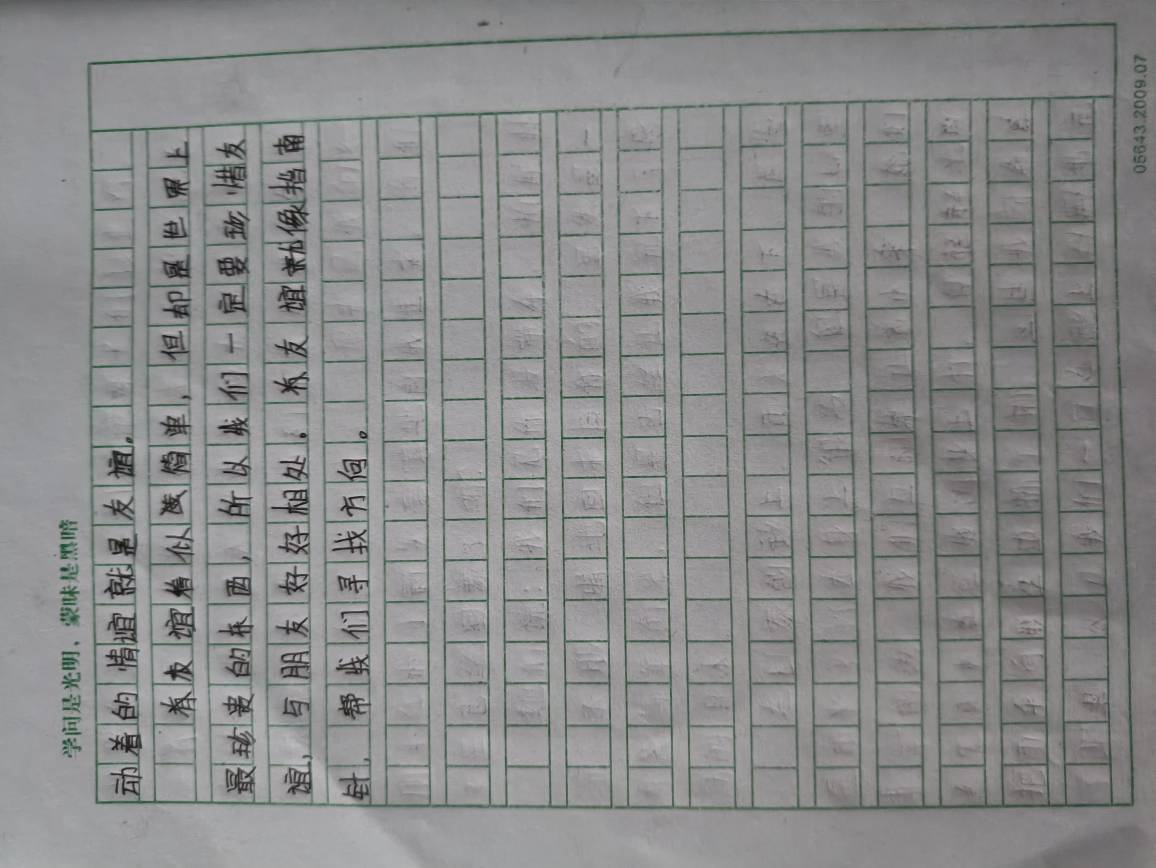 学问是光明，蒙昧是黑暗
动着的情谊就是友谊。
友谊看似简单，但却是世界上
最珍贵的东西，所以我们一定要珍惜友
谊，与朋友好好相处。友谊就像指南
针，帮我们寻找方向。
05643.2009.07